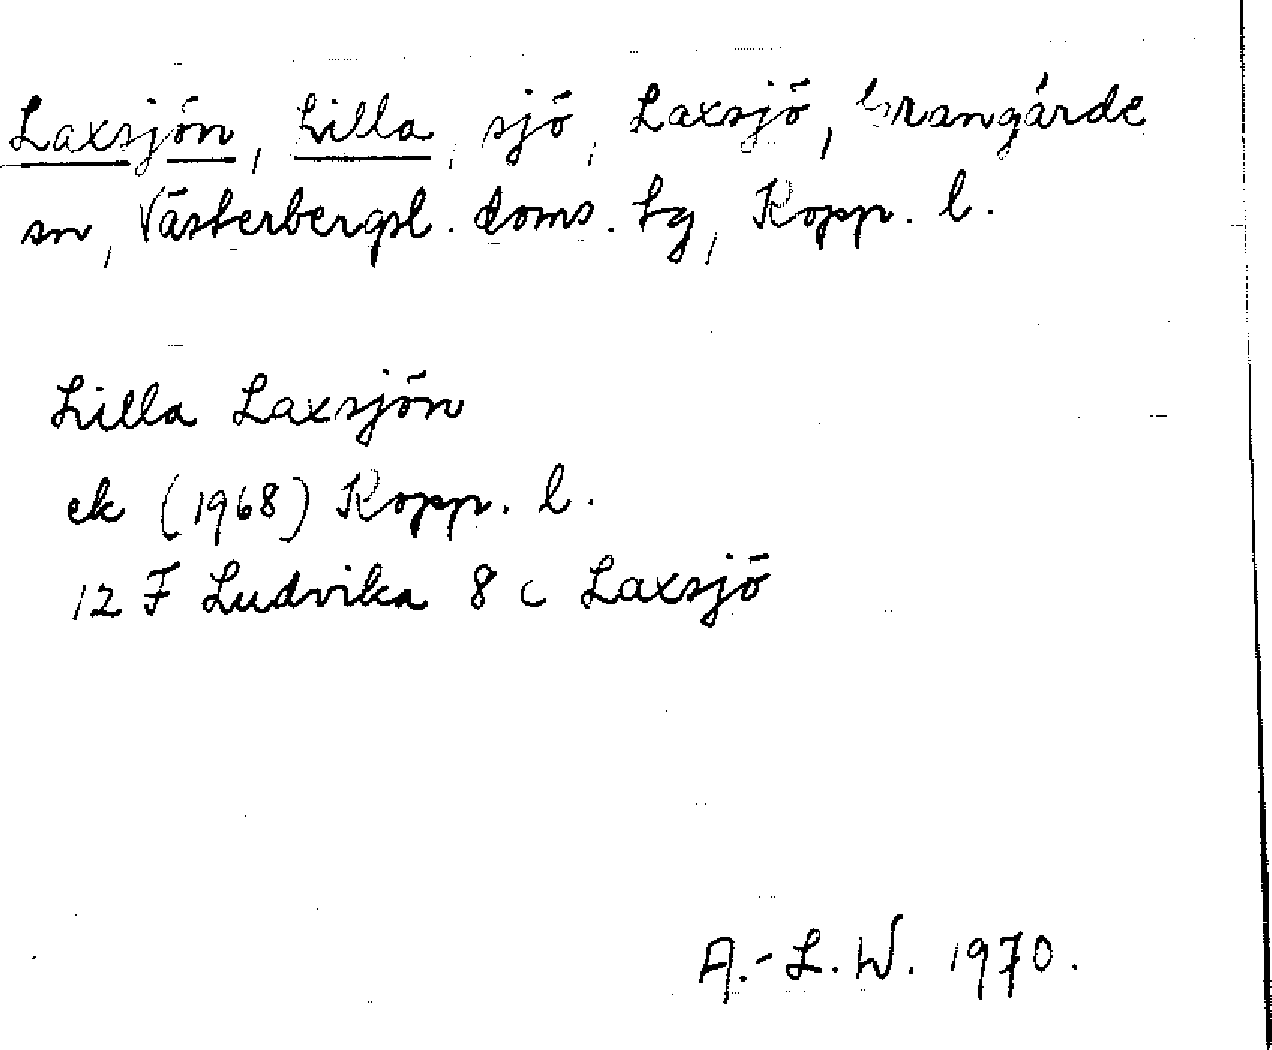 Laxsjön, Lilla, sjö, Laxsjö, Grangärde
sn, Västerbergsl. doms. tg, Kopp. l.
Lilla Laxsjön
ek (1968) Kopp. l.
12 F Ludvika 8 c Laxsjö
A.-L. W. 1970.